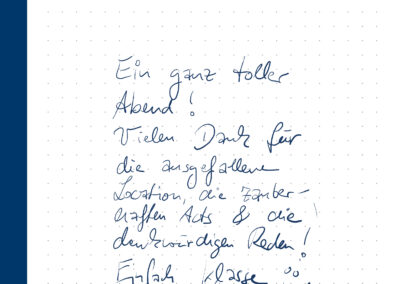 Ein ganz toller
Abend!
Vielen Dank für
die ausgefallene
Location, die zauber-
haften Acts & die
denkwürdigen Reden!
Einfach klasse